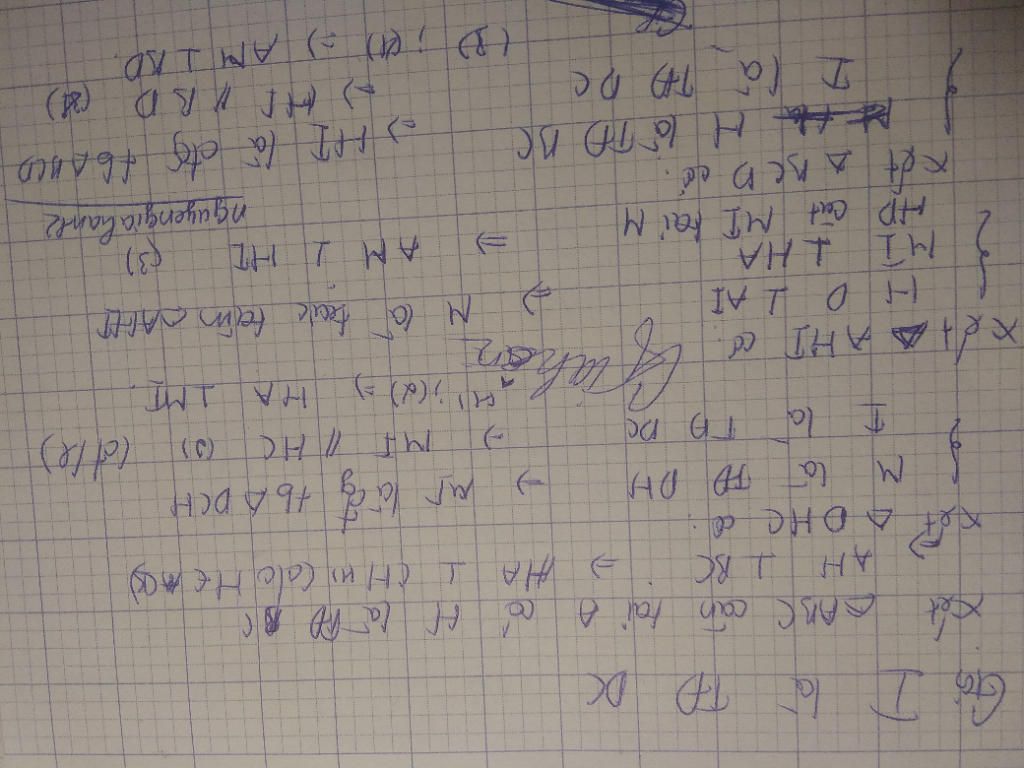 Gọi I là TĐ DC
Xét ΔABC cân tại A có H là TĐ BC
AH ⊥ BC ⇒ HA ⊥ CH (1) (do H ∈ BC)
Xét Δ DHC có:
M là TĐ DH → MI là đg tb Δ DCH
I là TĐ DC → MI // HC (2) (đ/l)
(1); (2) ⇒ HA ⊥ MI
Xét Δ AHI có:
H D ⊥ AI ⇒ M là trực tâm ΔAHI
MI ⊥ HA ⇒ AM ⊥ HI (3)
HD cắt MI tại M
nguyengiahante
Xét Δ BCD có:
H là TĐ BC ⇒ HI là đg tb Δ BCD
I là TĐ DC ⇒ HI // BD (4)
(3); (4) ⇒ AM ⊥ BD.